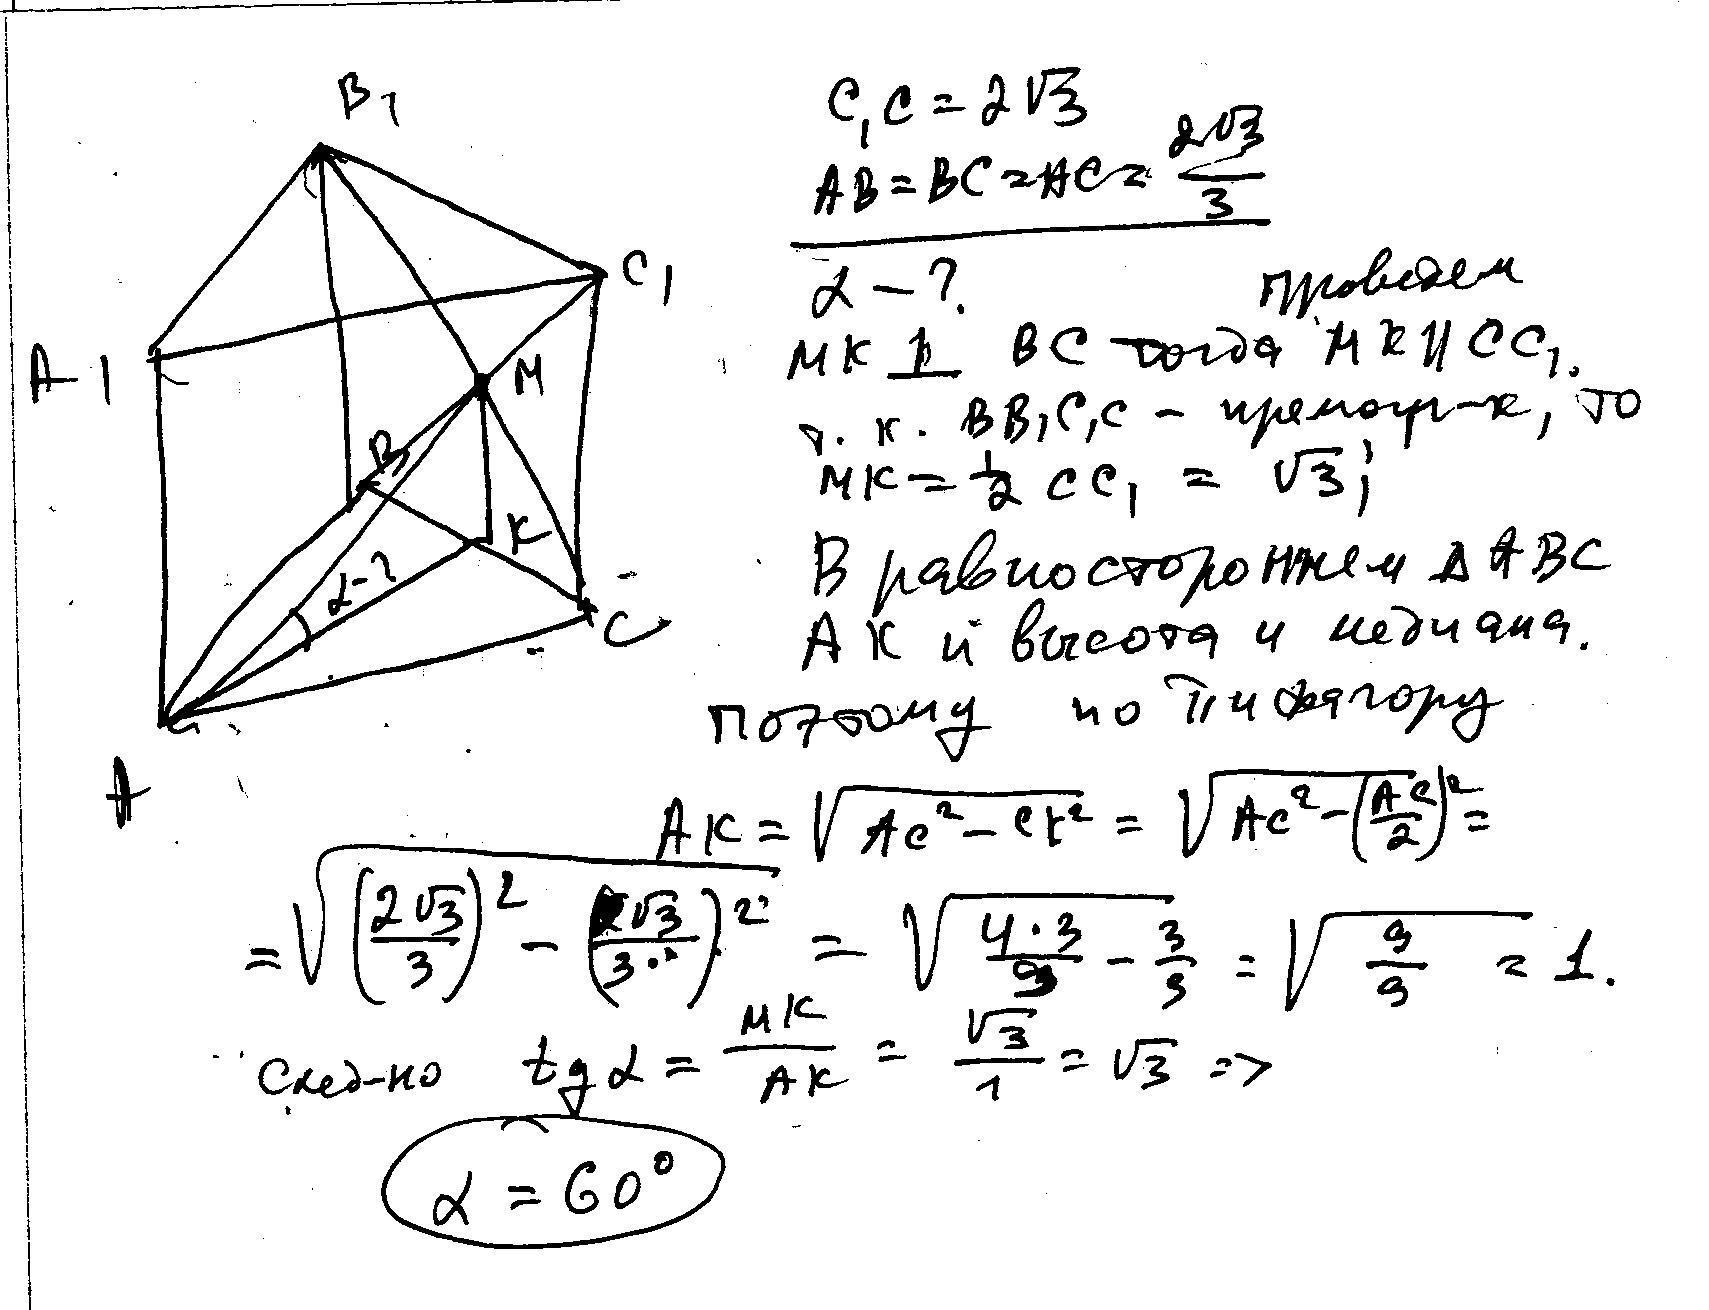 B₁
C₁
A₁
M
B
K
α-?
C
A
C₁C = 2√3
AB = BC = AC = 2√3/3
α - ?. проведем
MK ⊥ BC тогда MK || CC₁.
т. к. BB₁C₁C - прямоуг-к, то
MK = 1/2 CC₁ = √3;
В равностороннем Δ ABC
AK и высота и медиана.
Поэтому по Пифагору
AK = √(AC² - CK²) = √(AC² - (AC/2)²) =
= √((2√3/3)² - (2√3/3·2)²) = √(4·3/9 - 3/9) = √(9/9) = 1.
След-но tg α = MK/AK = √3/1 = √3 =>
α = 60°